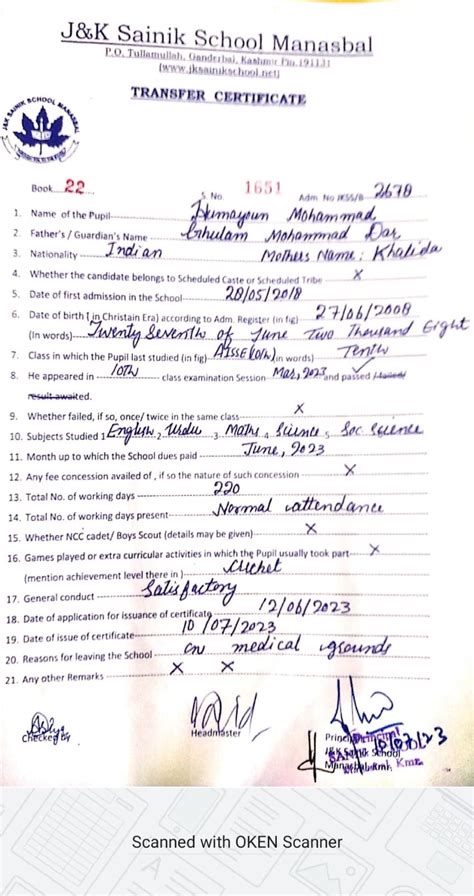 J&K Sainik School Manasbal
P.O. Tullamullah, Ganderbal, Kashmir Pin 191131
(www.jksainikschool.net)
TRANSFER CERTIFICATE
J&K SAINIK SCHOOL MANASBAL
Book 22 S. No 1651 Adm No JKSS/B 2670
1. Name of the Pupil Humayoun Mohammad
2. Father's / Guardian's Name Ghulam Mohammad Dar
3. Nationality Indian Mothers Name: Khalida
4. Whether the candidate belongs to Scheduled Caste or Scheduled Tribe X
5. Date of first admission in the School 28/05/2018
6. Date of birth (in Christain Era) according to Adm. Register (in fig) 27/06/2008
(In words) Twenty Seventh of June Two Thousand Eight
7. Class in which the Pupil last studied (in fig) AISSE(10th) in words) Tenth
8. He appeared in 10th class examination Session Mar, 2023 and passed / failed
result awaited.
9. Whether failed, if so, once/ twice in the same class X
10. Subjects Studied 1 English 2 Urdu 3 Maths 4 Science 5 Soc Science
11. Month up to which the School dues paid June, 2023
12. Any fee concession availed of, if so the nature of such concession X
13. Total No. of working days 220
14. Total No. of working days present Normal attendance
15. Whether NCC cadet/ Boys Scout (details may be given) X
16. Games played or extra curricular activities in which the Pupil usually took part X
(mention achievement level there in) Cricket
17. General conduct Satisfactory
18. Date of application for issuance of certificate 12/06/2023
19. Date of issue of certificate 10/07/2023
20. Reasons for leaving the School on medical grounds
21. Any other Remarks X X
Checked by Headmaster Principal
J&K Sainik School
Manasbal, Kmr.
10/07/23
Scanned with OKEN Scanner